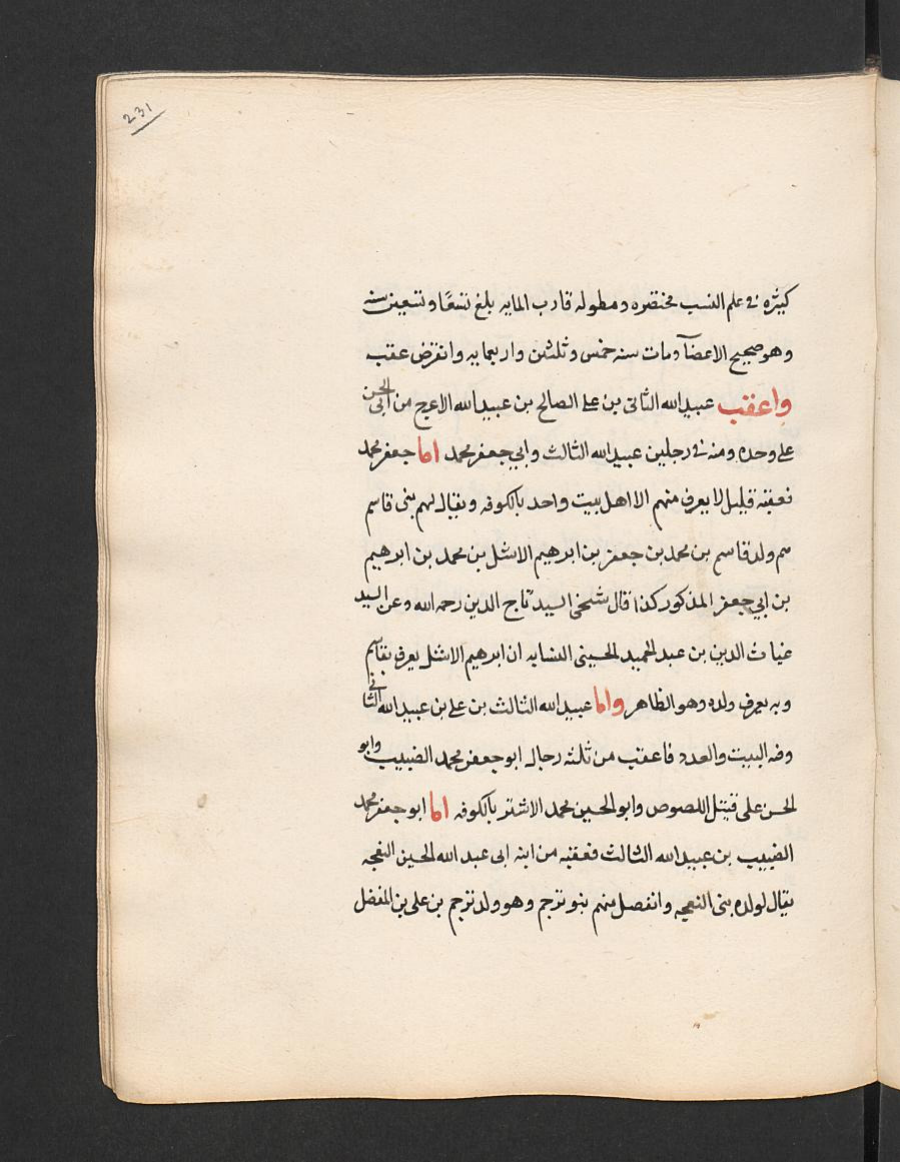 231
كثيره في علم النسب مختصره ومطوله قارب المايه بلغ تسعًا وتسعين سنه
وهو صحيح الاعضآ ومات سنه خمس وثلثين واربعمايه وانقرض عقب
واعقب عبيدالله الثانى بن على الصالح بن عبيدالله الاعرج من ابى الحسن
على وحده ومنه في رجلين عبيدالله الثالث وابي جعفر محمد اما جعفر محمد
فعقبه قليل لا يعرف منهم الا اهل بيت واحد بالكوفه ويقال لهم بنى قاسم
هم ولد قاسم بن محمد بن جعفر بن ابرهيم الاشل بن محمد بن ابرهيم
بن ابي جعفر المذكور كذا قال شيخى السيد تاج الدين رحمه الله وعن السيد
غياث الدين بن عبد الحميد الحسينى النسابه ان ابرهيم الاشل يعرف بقاسم
وبه يعرف ولده وهو الظاهر واما عبيدالله الثالث بن على بن عبيدالله الثانى
وفه البيت والعدد فاعقب من ثلثه رجال ابو جعفر محمد الضبيب وابو
الحسن على قتيل اللصوص وابو الحسين محمد الاشتر بالكوفه اما ابو جعفر محمد
الضبيب بن عبيدالله الثالث فعقبه من ابنه ابى عبد الله الحسين النعجه
يقال لولده بنى النعجه وانفصل منهم بنو ترجم وهو ولد ترجم بن على بن المفضل